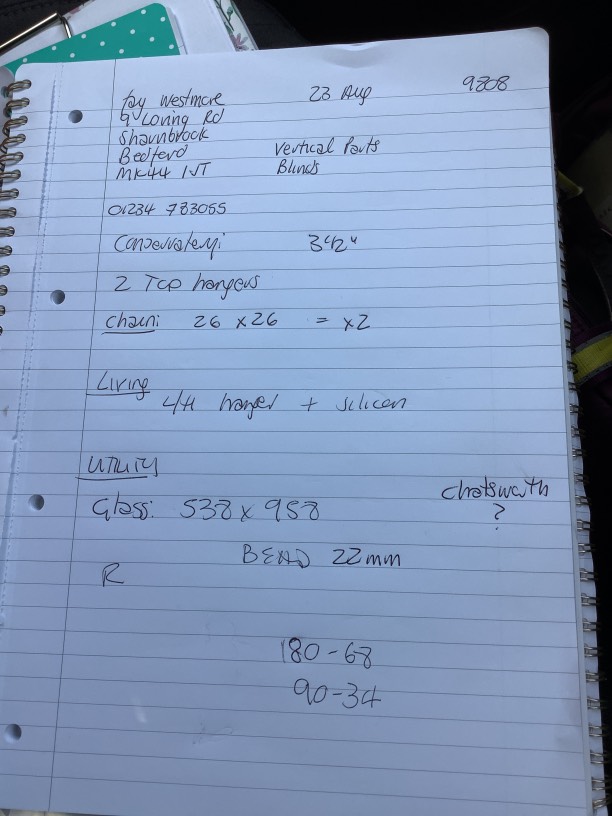 Fay Westmore 23 Aug 9808
9 Loring Rd
Sharnbrook
Bedford Vertical Parts
MK44 1JT Blinds
01234 783055
Conservatory: 3 1/2"
2 Top hangers
Chain: 26 x 26 = x2
Living
L/H hanger + silicon
UTILITY
Glass: 538 x 958 Chatsworth
?
BEAD 22mm
R
180 - 68
90 - 34